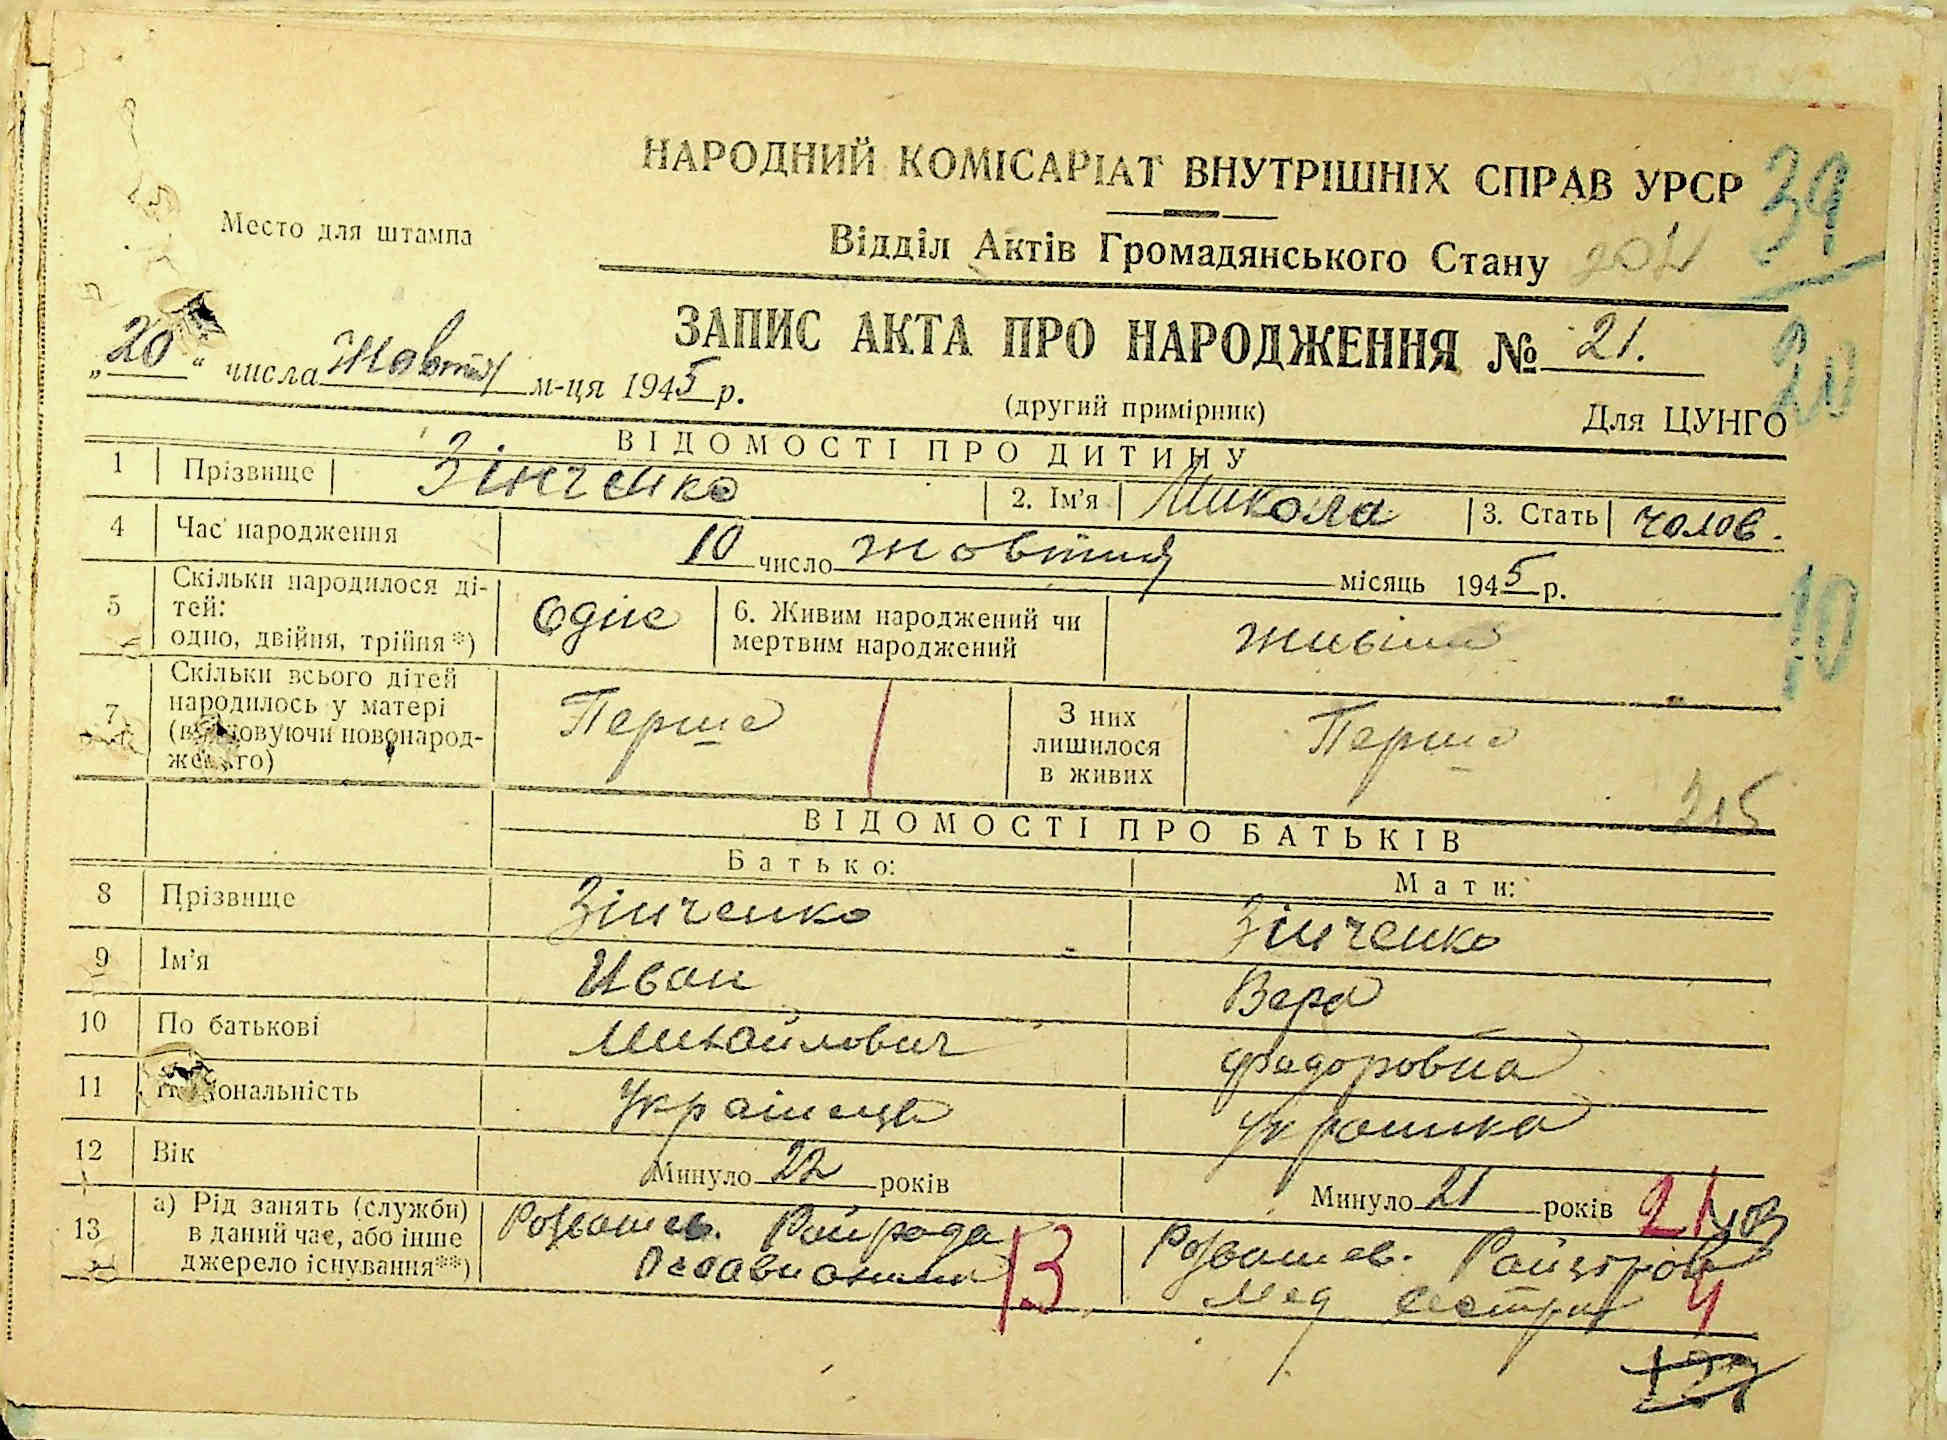 НАРОДНИЙ КОМІСАРІАТ ВНУТРІШНІХ СПРАВ УРСР
39
Место для штампа
Відділ Актів Громадянського Стану
ЗАПИС АКТА ПРО НАРОДЖЕННЯ № 21.
„20“ числа Жовтня м-ця 1945 р.
20
(другий примірник)
Для ЦУНГО
ВІДОМОСТІ ПРО ДИТИНУ
1 Прізвище Зінченко 2. Ім'я Микола 3. Стать чолов.
4 Час народження 10 число жовтня місяць 1945 р.
10
5 Скільки народилося ді-
тей:
одно, двійня, трійня*) Одне 6. Живим народжений чи
мертвим народжений живим
7 Скільки всього дітей
народилось у матері
(в овуючи новонарод-
же го) Перше З них
лишилося
в живих Перше
215
ВІДОМОСТІ ПРО БАТЬКІВ
Батько: Мати:
8 Прізвище Зінченко Зінченко
9 Ім'я Иван Вера
10 По батькові Михайлович Федоровна
11 ональність Українець українка
12 Вік Минуло 22 років Минуло 21 років
21
13 а) Рід занять (служби)
в даний час, або інше
джерело існування**) Розважев. Райрада
13
Розважев.
Мед сестра
4
127